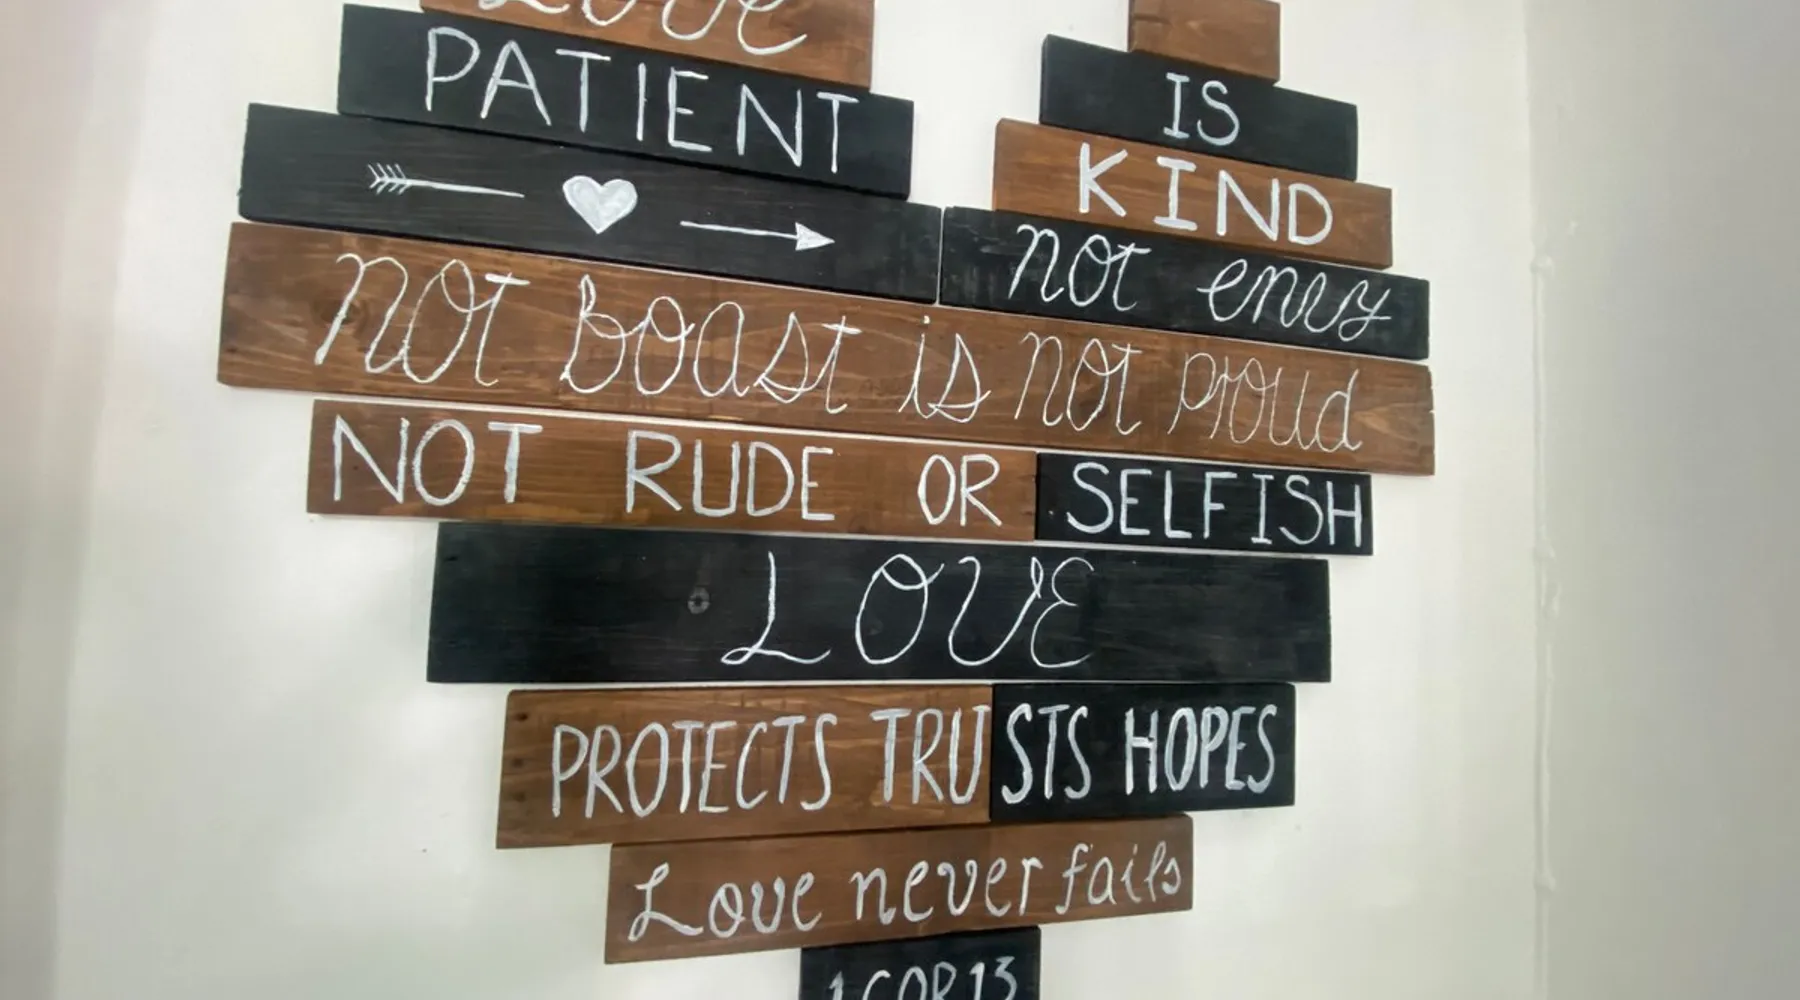 Love
PATIENT IS
KIND
not envy
not Boast is not proud
NOT RUDE OR SELFISH
LOVE
PROTECTS TRUSTS HOPES
Love never fails
1 COR 13